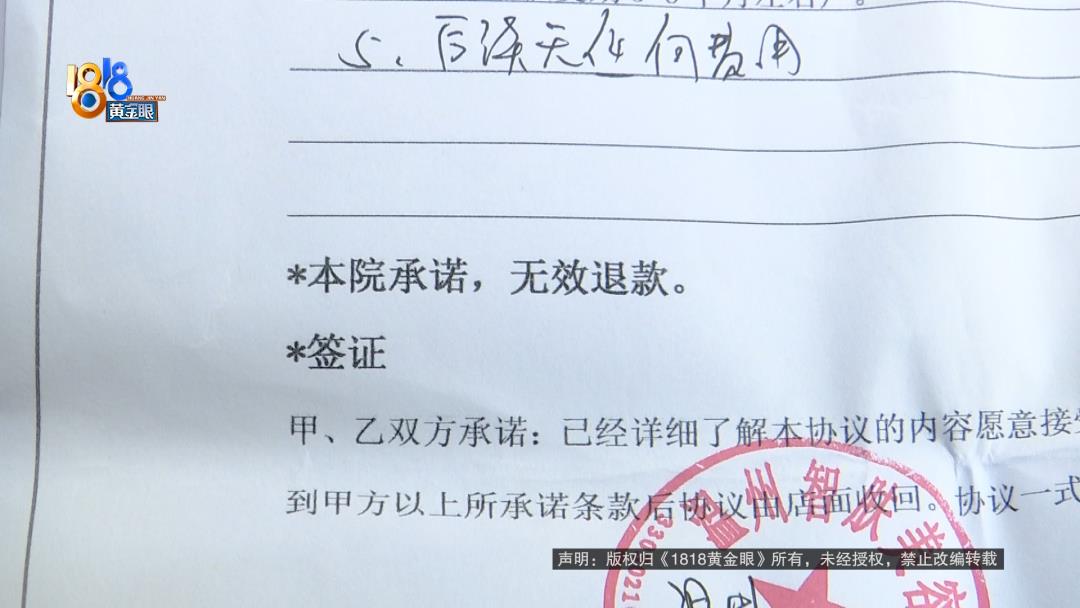 5、后续无任何费用
1818
HUANG JIN YAN
黄金眼
*本院承诺，无效退款。
*签证
甲、乙双方承诺：已经详细了解本协议的内容愿意接受
到甲方以上所承诺条款后协议由店面收回。协议一式
州智肤美容
声明：版权归《1818黄金眼》所有，未经授权，禁止改编转载